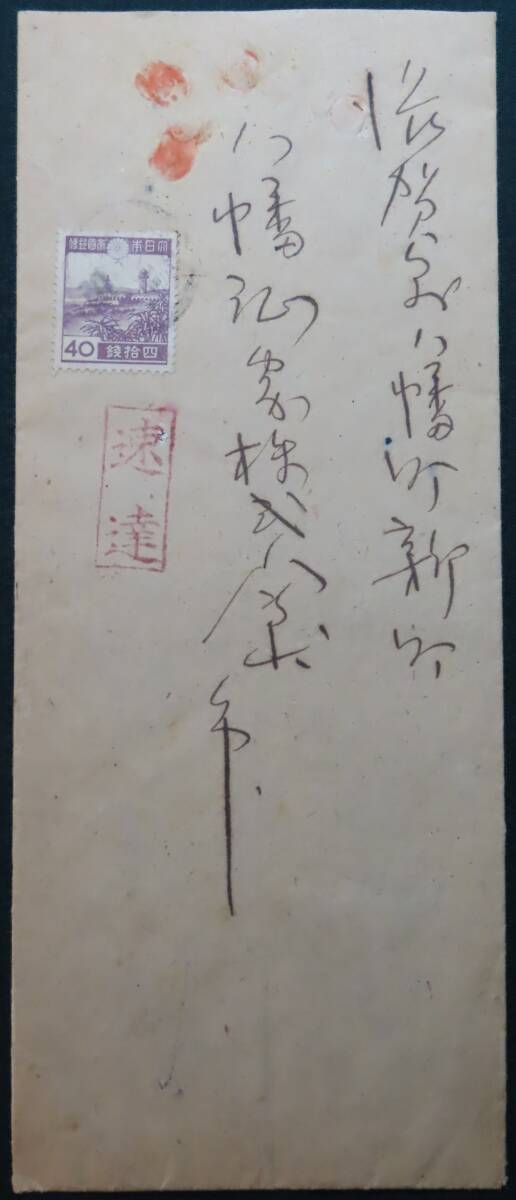 滋賀県八幡町新町
八幡 株式会社
大日本帝國郵便
四拾錢 40
速達